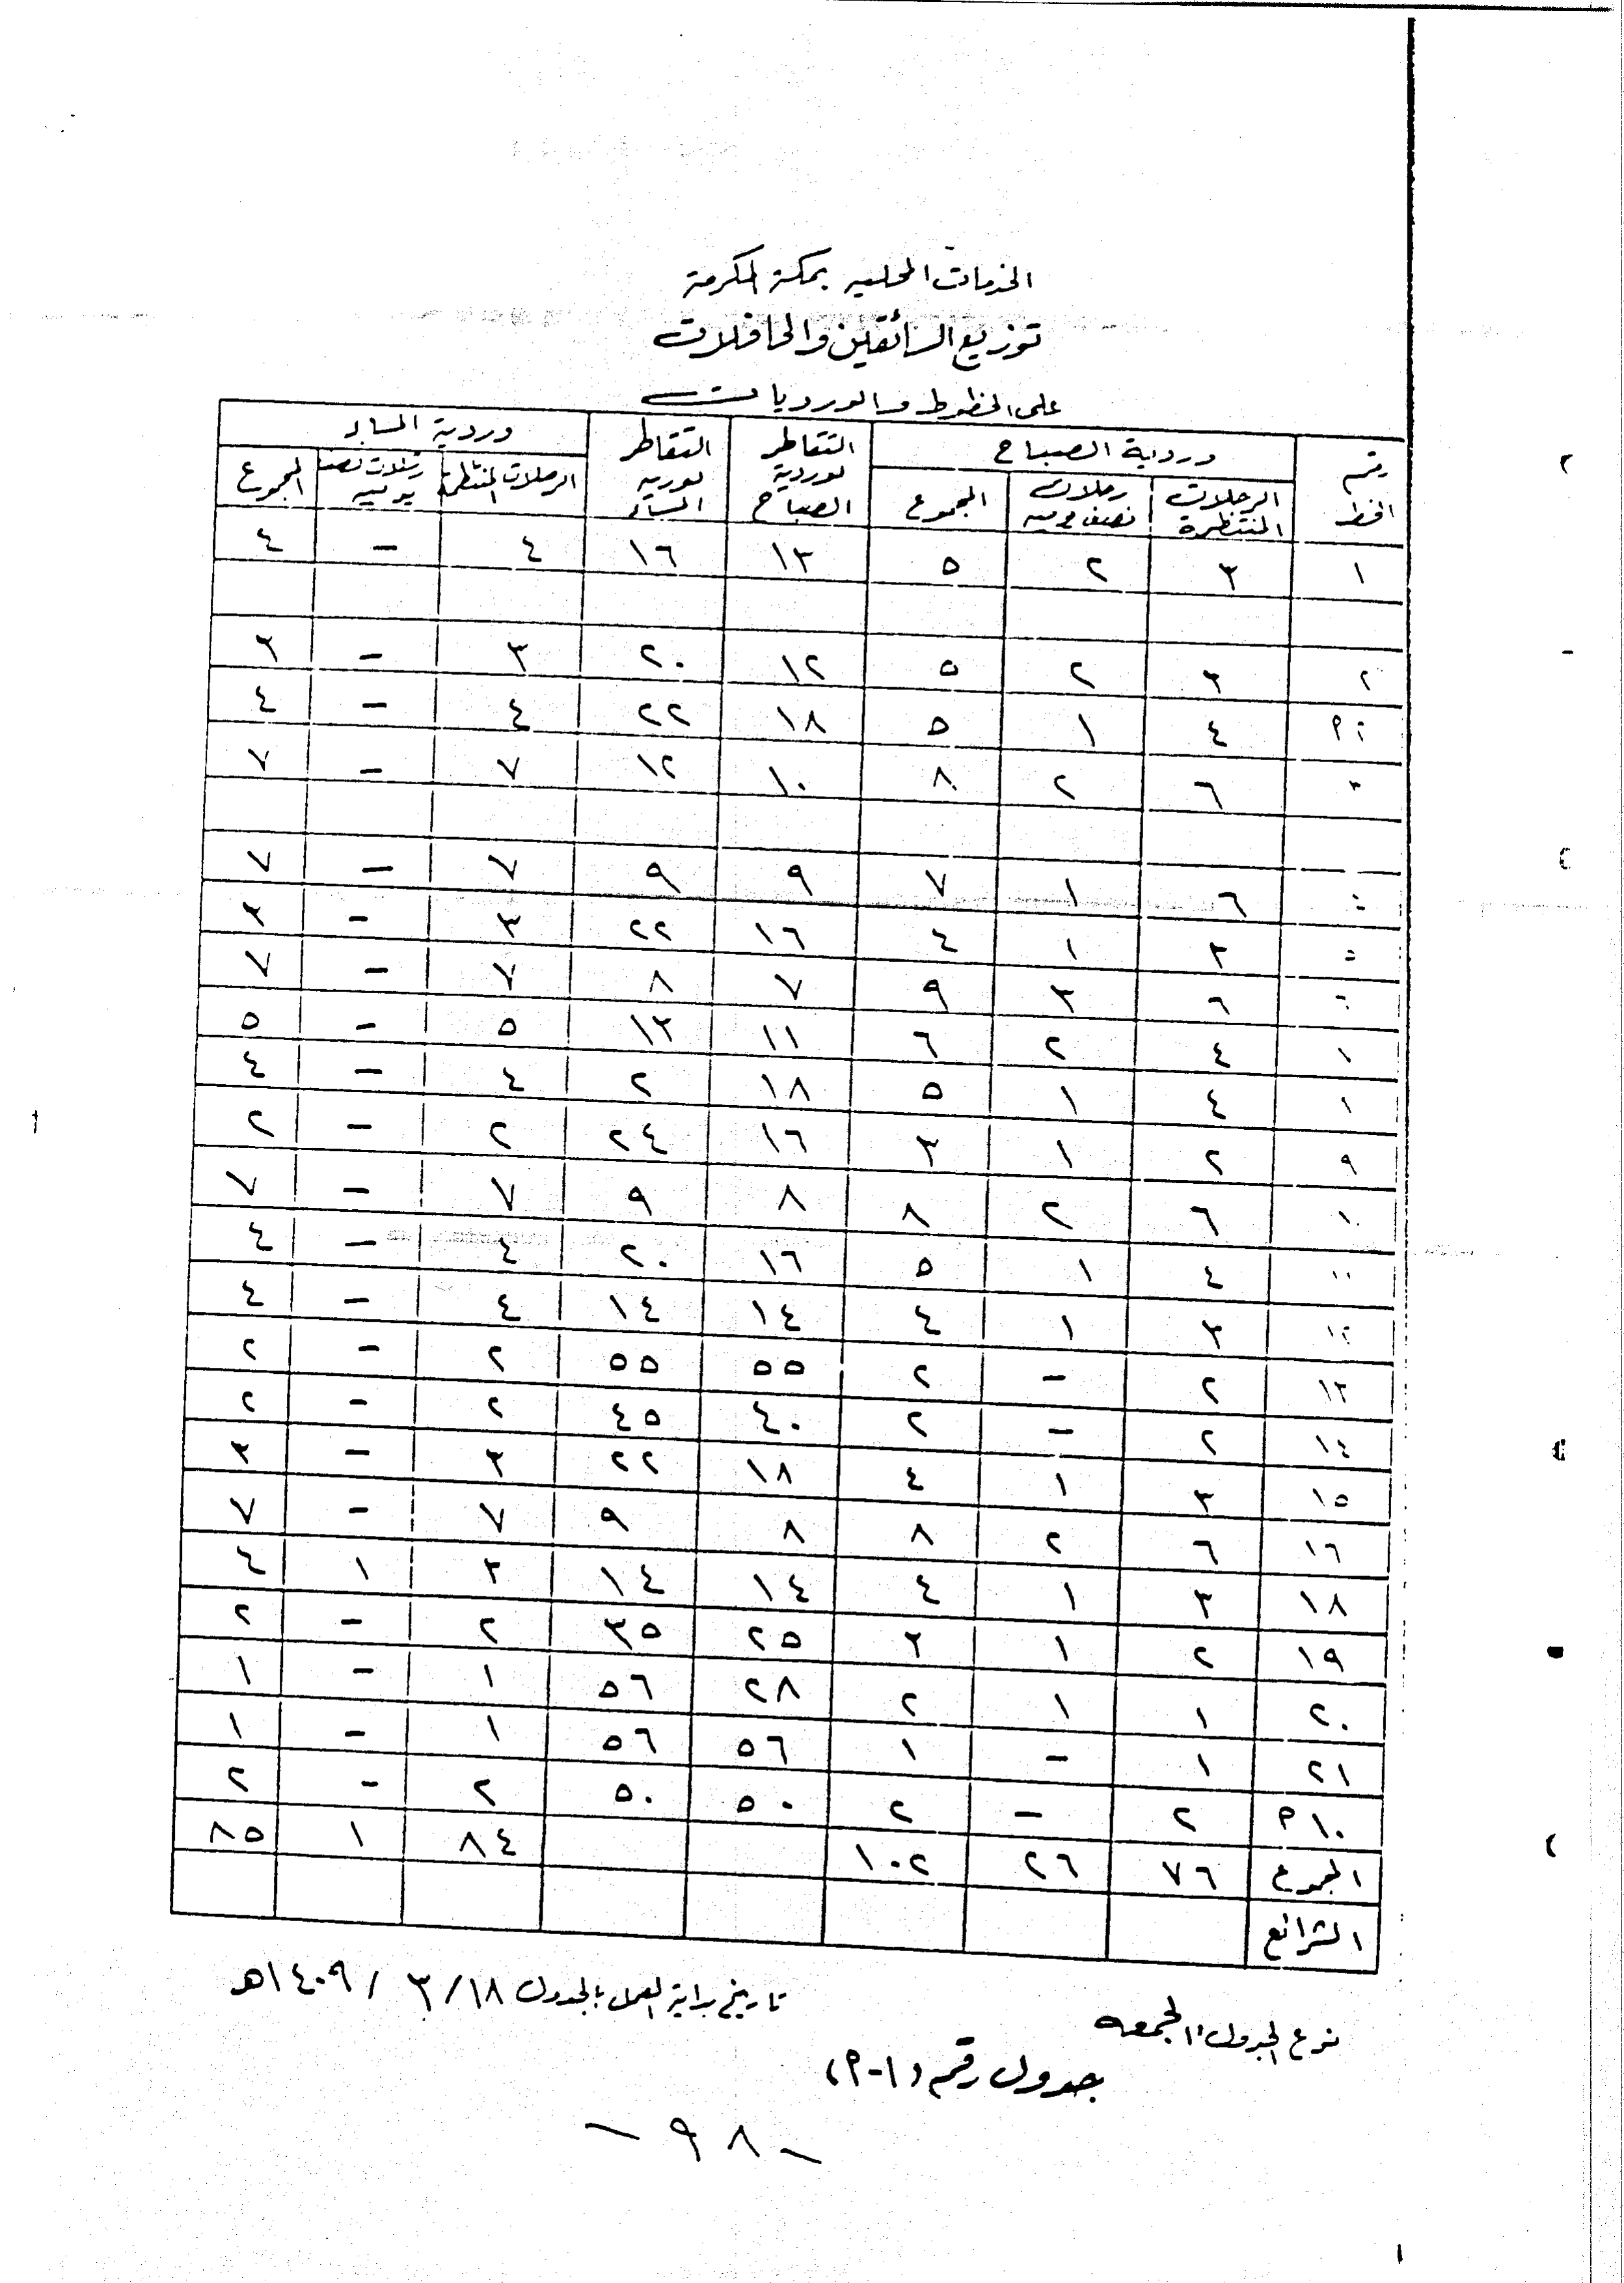 الخدمات المحليه بمكة المكرمة
توزيع السائقين والحافلات
على الخطوط والورديات
رقم الخط | وردية الصباح | التقاطر لوردية الصباح | التقاطر لوردية المساء | وردية المساء
الرحلات المنتظرة | رحلات نصف يوميه | المجموع | الرحلات المنتظمة | رحلات نصف يوميه | المجموع
١ | ٣ | ٢ | ٥ | ١٣ | ١٦ | ٤ | - | ٤
٢ | ٣ | ٢ | ٥ | ١٢ | ٢٠ | ٣ | - | ٣
٤ | ١ | ٥ | ١٨ | ٢٢ | ٤ | - | ٤
٣ | ٦ | ٢ | ٨ | ١٠ | ١٢ | ٧ | - | ٧
٦ | ١ | ٧ | ٩ | ٩ | ٧ | - | ٧
٣ | ١ | ٤ | ١٦ | ٢٢ | ٣ | - | ٣
٦ | ٣ | ٩ | ٧ | ٨ | ٧ | - | ٧
٤ | ٢ | ٦ | ١١ | ١٣ | ٥ | - | ٥
٤ | ١ | ٥ | ١٨ | ٢ | ٤ | - | ٤
٩ | ٢ | ١ | ٣ | ١٦ | ٢٤ | ٢ | - | ٢
١٠ | ٦ | ٢ | ٨ | ٨ | ٩ | ٧ | - | ٧
١١ | ٤ | ١ | ٥ | ١٦ | ٢٠ | ٤ | - | ٤
١٢ | ٣ | ١ | ٤ | ١٤ | ١٤ | ٤ | - | ٤
١٣ | ٢ | - | ٢ | ٥٥ | ٥٥ | ٢ | - | ٢
١٤ | ٢ | - | ٢ | ٤٠ | ٤٥ | ٢ | - | ٢
١٥ | ٣ | ١ | ٤ | ١٨ | ٢٢ | ٣ | - | ٣
١٦ | ٦ | ٢ | ٨ | ٨ | ٩ | ٧ | - | ٧
١٨ | ٣ | ١ | ٤ | ١٤ | ١٤ | ٣ | ١ | ٤
١٩ | ٢ | ١ | ٣ | ٢٥ | ٣٥ | ٢ | - | ٢
٢٠ | ١ | ١ | ٢ | ٢٨ | ٥٦ | ١ | - | ١
٢١ | ١ | - | ١ | ٥٦ | ٥٦ | ١ | - | ١
١٠م | ٢ | - | ٢ | ٥٠ | ٥٠ | ٢ | - | ٢
المجموع | ٧٦ | ٢٦ | ١٠٢ | ٨٤ | ١ | ٨٥
الشرائع
تاريخ بداية العمل بالجدول ١٨/ ٣ / ١٤٠٩هـ
نوع الجدول: الجمعه
جدول رقم (١-م)
- ٩٨ -